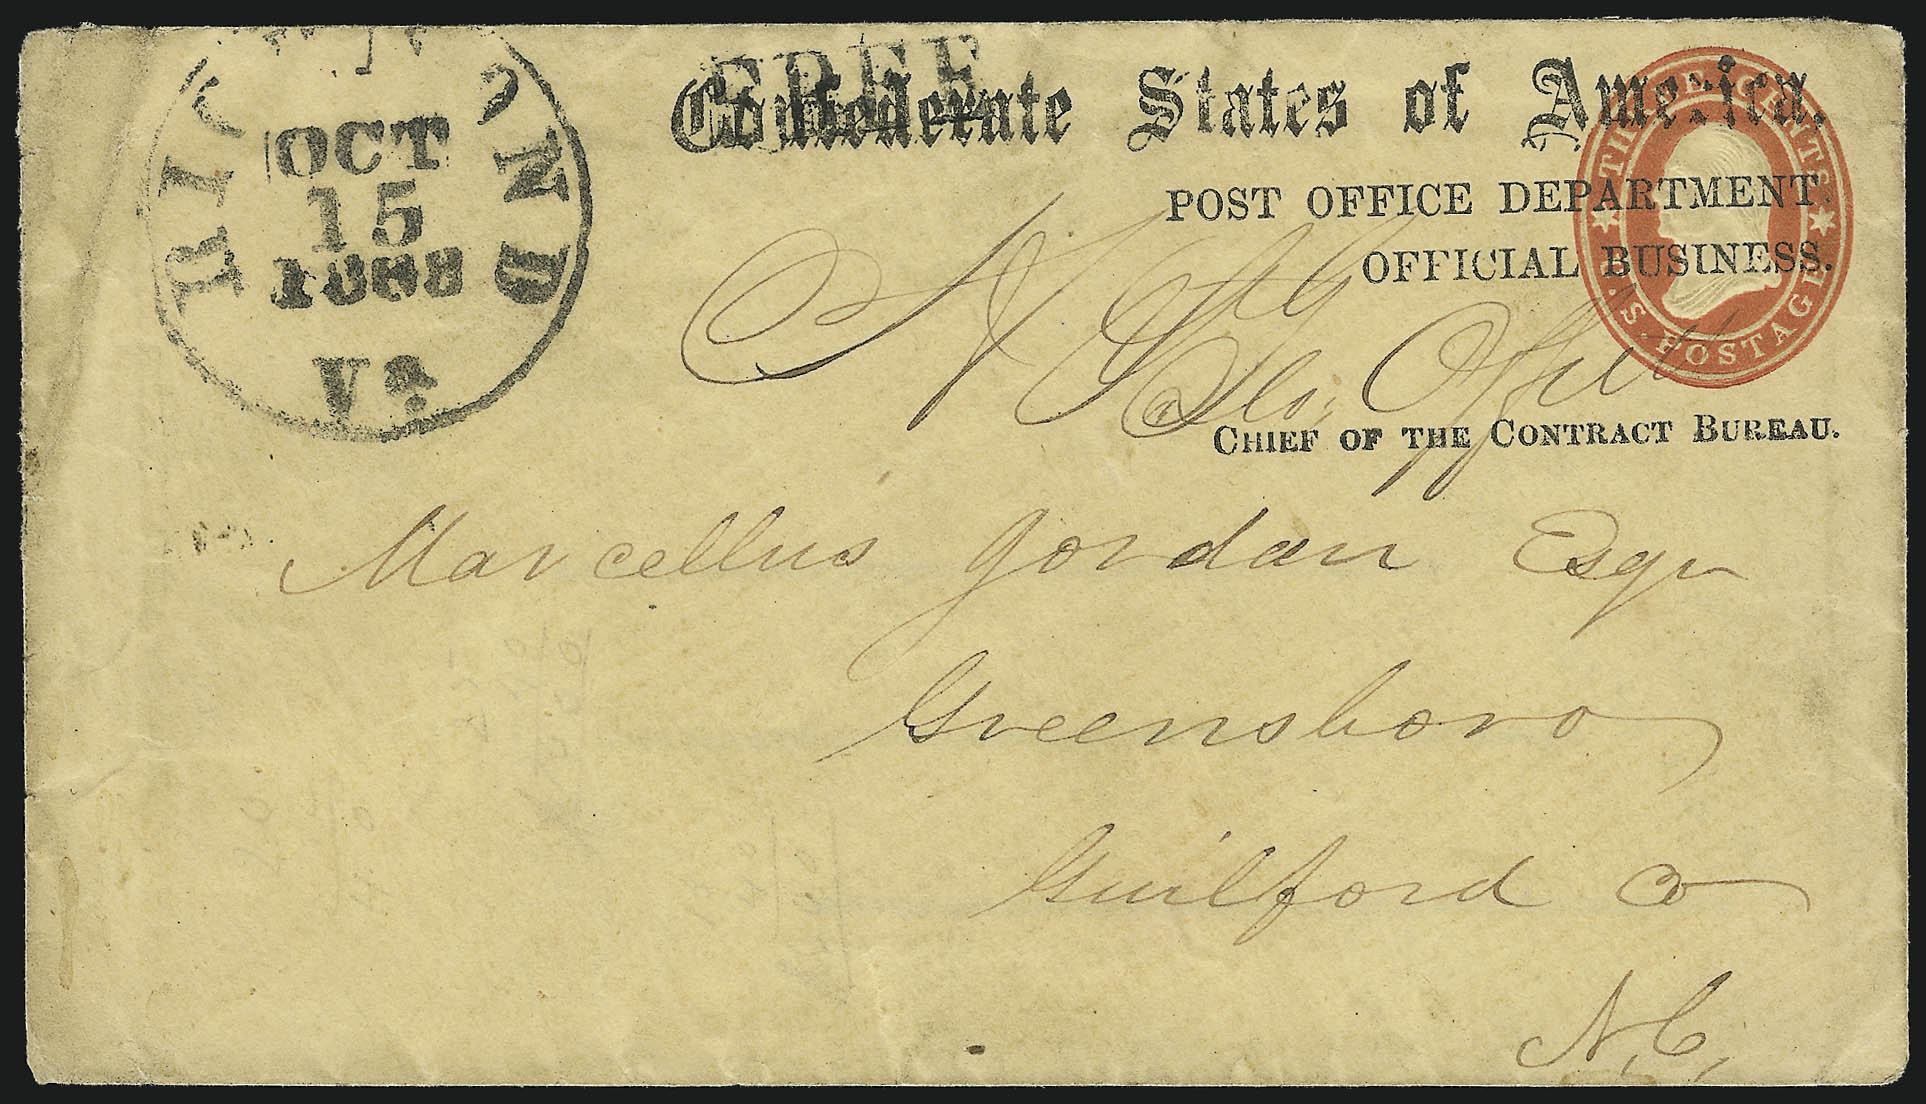 RICHMOND
OCT
15
1863
Va
FREE
Confederate States of America.
POST OFFICE DEPARTMENT.
OFFICIAL BUSINESS.
THREE CENTS
U.S. POSTAGE
CHIEF OF THE CONTRACT BUREAU.
Marcellus Jordan Esqr
Greensboro
Guilford Co
N.C.